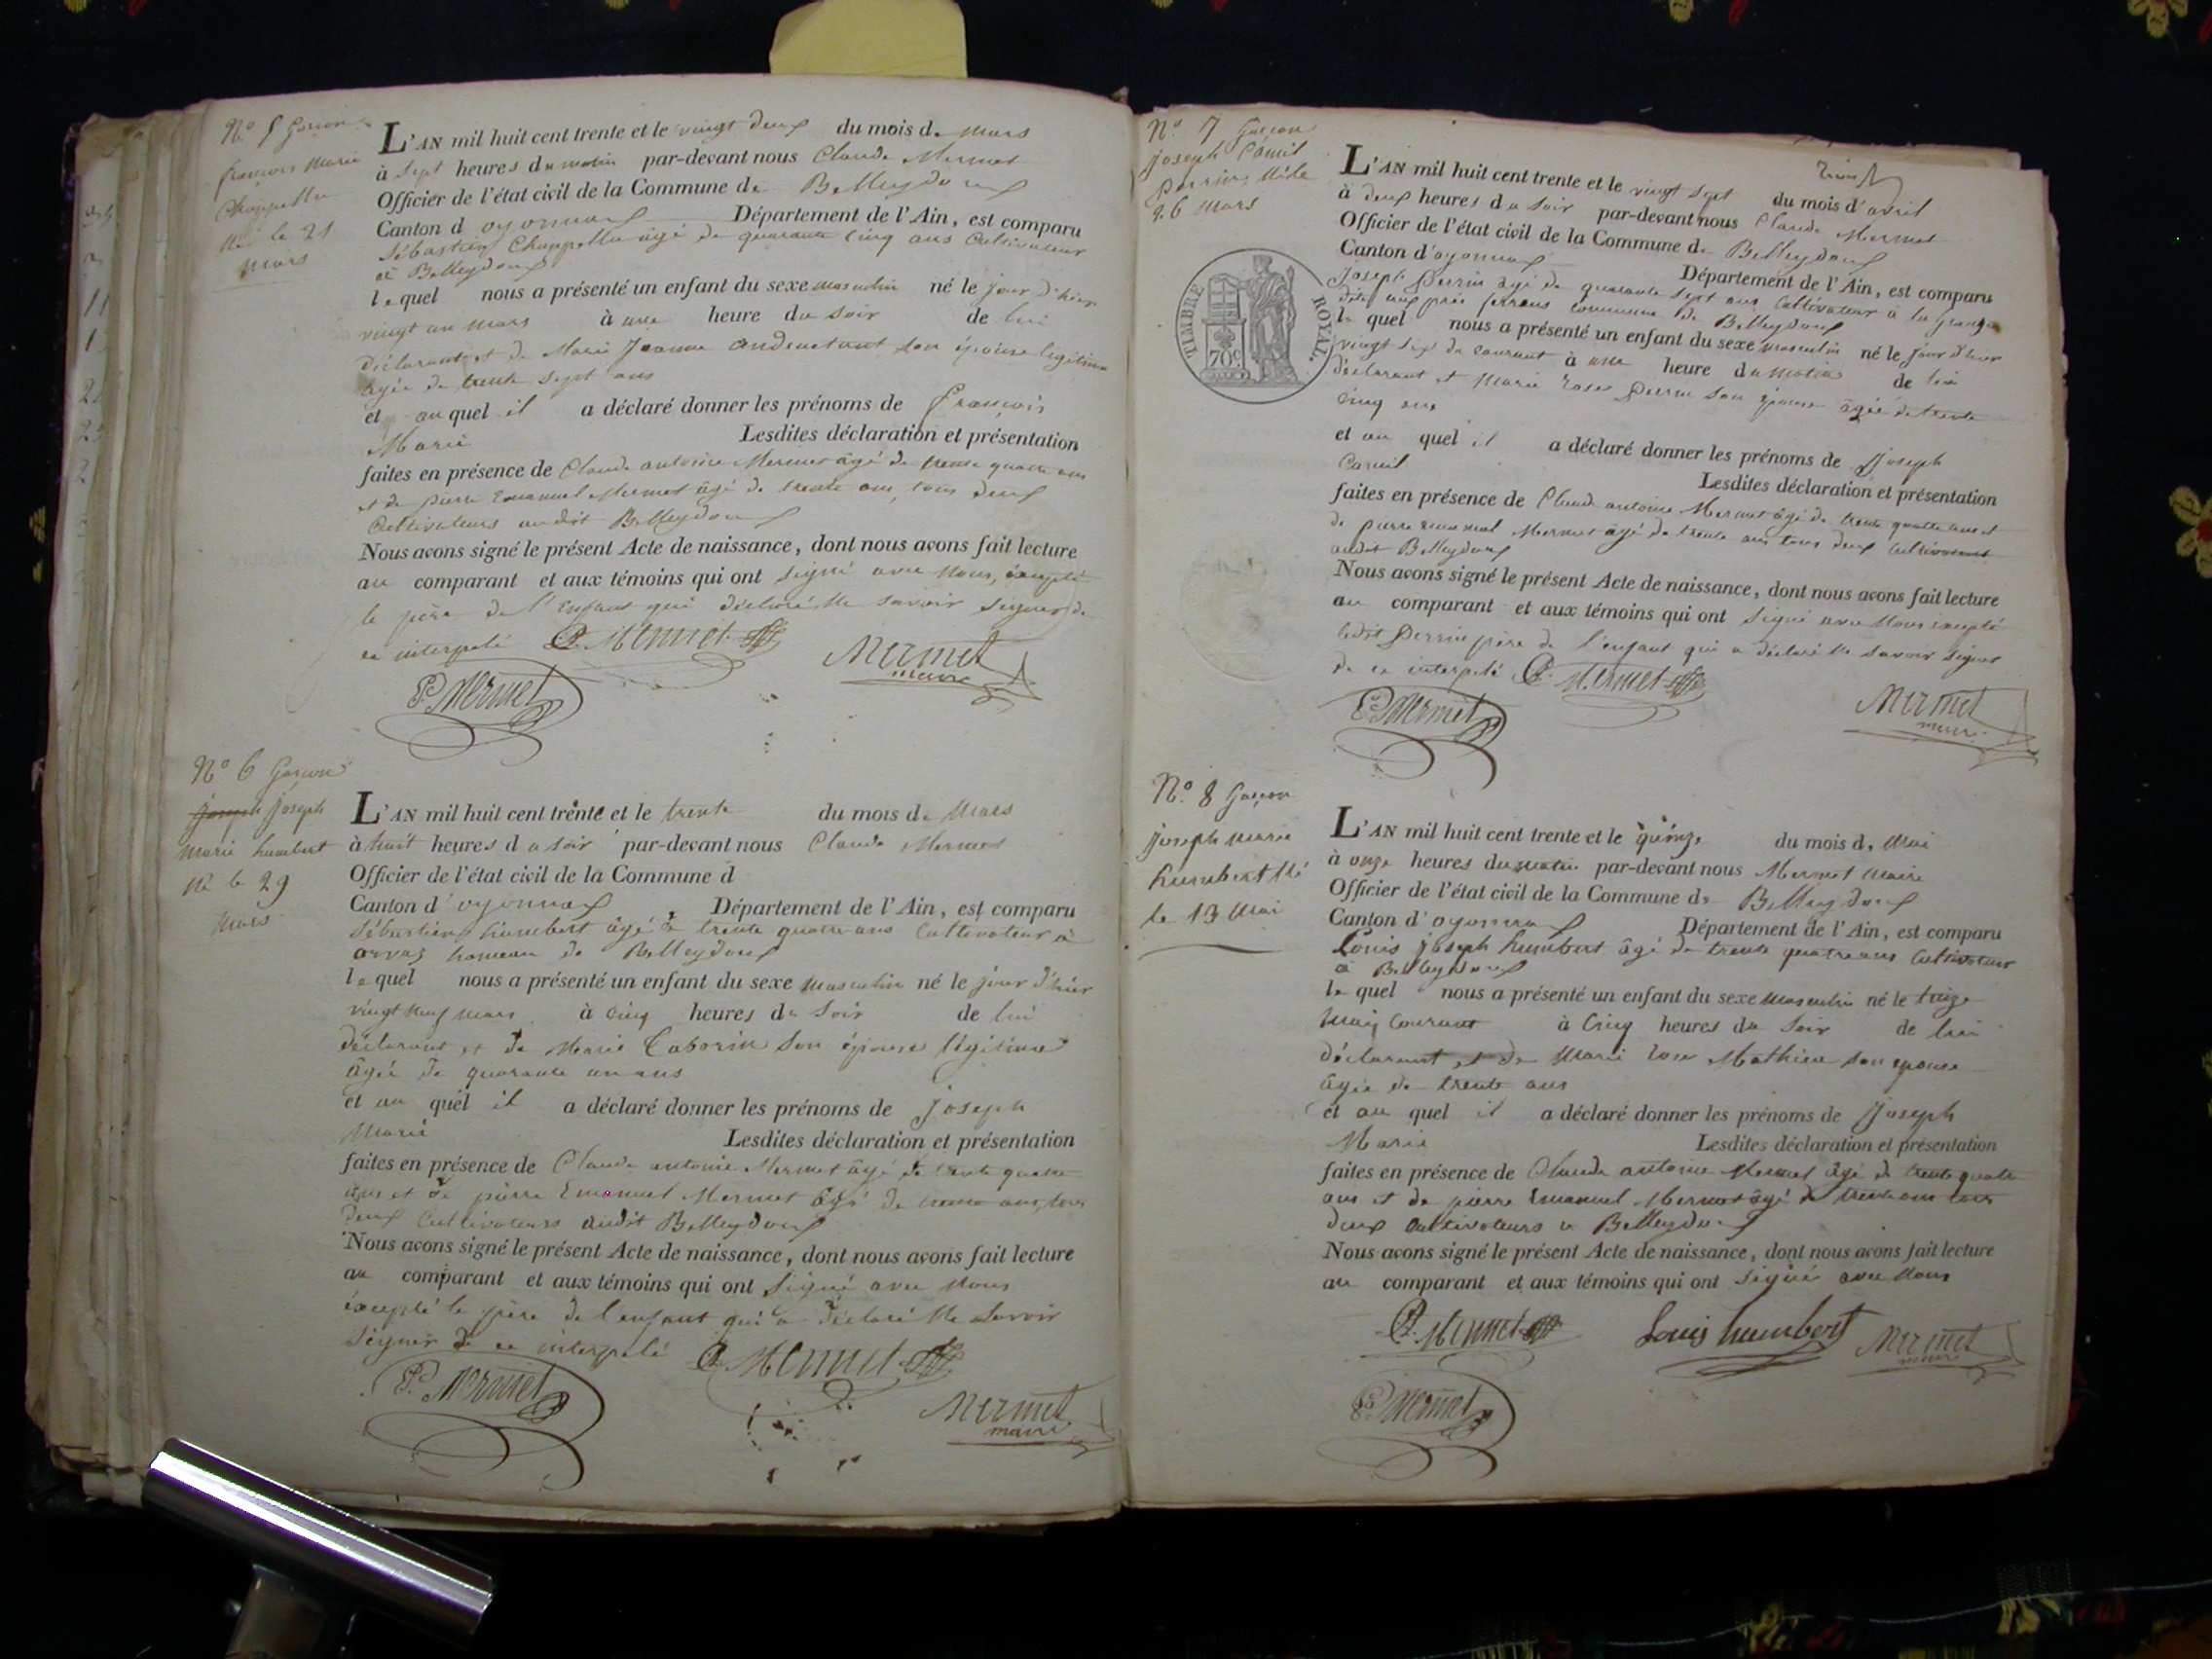 N.o 5 Garçon
françois Marie
Chappellu
Né le 21
Mars
L'AN mil huit cent trente et le vingt deux du mois de Mars
à sept heures du matin par-devant nous Claude Mermet
Officier de l'état civil de la Commune de Belleydoux
Canton d'oyonnax Département de l'Ain, est comparu
Sébastien Chappellu âgé de quarante cinq ans Cultivateur
à Belleydoux
lequel nous a présenté un enfant du sexe masculin né le jour d'hier
vingt un mars à une heure du soir de lui
déclarant et de Marie Jeanne son épouse légitime
âgée de trente sept ans
et auquel il a déclaré donner les prénoms de françois
Marie Lesdites déclaration et présentation
faites en présence de Claude antoine Mermet âgé de trente quatre ans
et de pierre Emanuel Mermet âgé de trente ans, tous deux
Cultivateurs audit Belleydoux
Nous avons signé le présent Acte de naissance, dont nous avons fait lecture
au comparant et aux témoins qui ont signé avec Nous, éxcepté
le père de l'Enfant qui déclaré Ne savoir signer de
ce interpelé C. Mermet Mermet
maire
P. Mermet
N.o 6 Garçon
joseph joseph
marie humbert
Né le 29
Mars
L'AN mil huit cent trente et le trente du mois de Mars
à huit heures du soir par-devant nous Claude Mermet
Officier de l'état civil de la Commune d
Canton d'oyonnax Département de l'Ain, est comparu
Sébastien humbert âgé de trente quatre ans Cultivateur à
orvaz hameau de Belleydoux
lequel nous a présenté un enfant du sexe masculin né le jour d'hier
vingt neuf mars à cinq heures du soir de lui
déclarant et de Marie Taborin son épouse légitime
âgée de quarante un ans
et au quel il a déclaré donner les prénoms de joseph
Marie Lesdites déclaration et présentation
faites en présence de Claude antoine Mermet âgé de trente quatre
ans et de pierre Emanuel Mermet âgé de trente ans, tous
deux Cultivateurs audit Belleydoux
Nous avons signé le présent Acte de naissance, dont nous avons fait lecture
au comparant et aux témoins qui ont signé avec Nous
éxcepté le père de l'enfant qui a déclaré Ne savoir
signer de ce interpelé C. Mermet
P. Mermet
Mermet
maire
N.o 7 Garçon
joseph Camil
Perrin, Né le
26 Mars
TIMBRE ROYAL.
70c
L'AN mil huit cent trente et le vingt sept du mois d'avril
à deux heures du soir par-devant nous Claude Mermet
Officier de l'état civil de la Commune de Belleydoux
Canton d'oyonnax Département de l'Ain, est comparu
Joseph Perrin âgé de quarante sept ans Cultivateur à la grange
dite aux prés commune de Belleydoux
lequel nous a présenté un enfant du sexe masculin né le jour d'hier
vingt six du courant à une heure du matin de lui
déclarant et Marie Rose Perrin son épouse âgée de trente
cinq ans
et au quel il a déclaré donner les prénoms de Joseph
Camil Lesdites déclaration et présentation
faites en présence de Claude antoine Mermet âgé de trente quatre ans et
de pierre emanuel Mermet âgé de trente ans tous deux Cultivateurs
audit Belleydoux
Nous avons signé le présent Acte de naissance, dont nous avons fait lecture
au comparant et aux témoins qui ont signé avec Nous excepté
ledit Perrin père de l'enfant qui a déclaré Ne savoir signer
de ce interpelé C. Mermet
P. Mermet Mermet
maire
N.o 8 Garçon
joseph marie
humbert Né
le 13 Mai
L'AN mil huit cent trente et le quinze du mois de Mai
à onze heures du matin par-devant nous Mermet Maire
Officier de l'état civil de la Commune de Belleydoux
Canton d'oyonnax Département de l'Ain, est comparu
Louis joseph humbert âgé de trente quatre ans Cultivateur
à Belleydoux
lequel nous a présenté un enfant du sexe masculin né le treize
Mai Courant à Cinq heures du Soir de lui
déclarant et de Marie Rose Mathieu son epouse
âgée de trente ans
et au quel il a déclaré donner les prénoms de Joseph
Marie Lesdites déclaration et présentation
faites en présence de Claude antoine Mermet âgé de trente quatre
ans et de pierre Emanuel Mermet âgé de trente ans tous
deux Cultivateurs à Belleydoux
Nous avons signé le présent Acte de naissance, dont nous avons fait lecture
au comparant et aux témoins qui ont signé avec Nous
C. Mermet Louis humbert Mermet
maire
P. Mermet